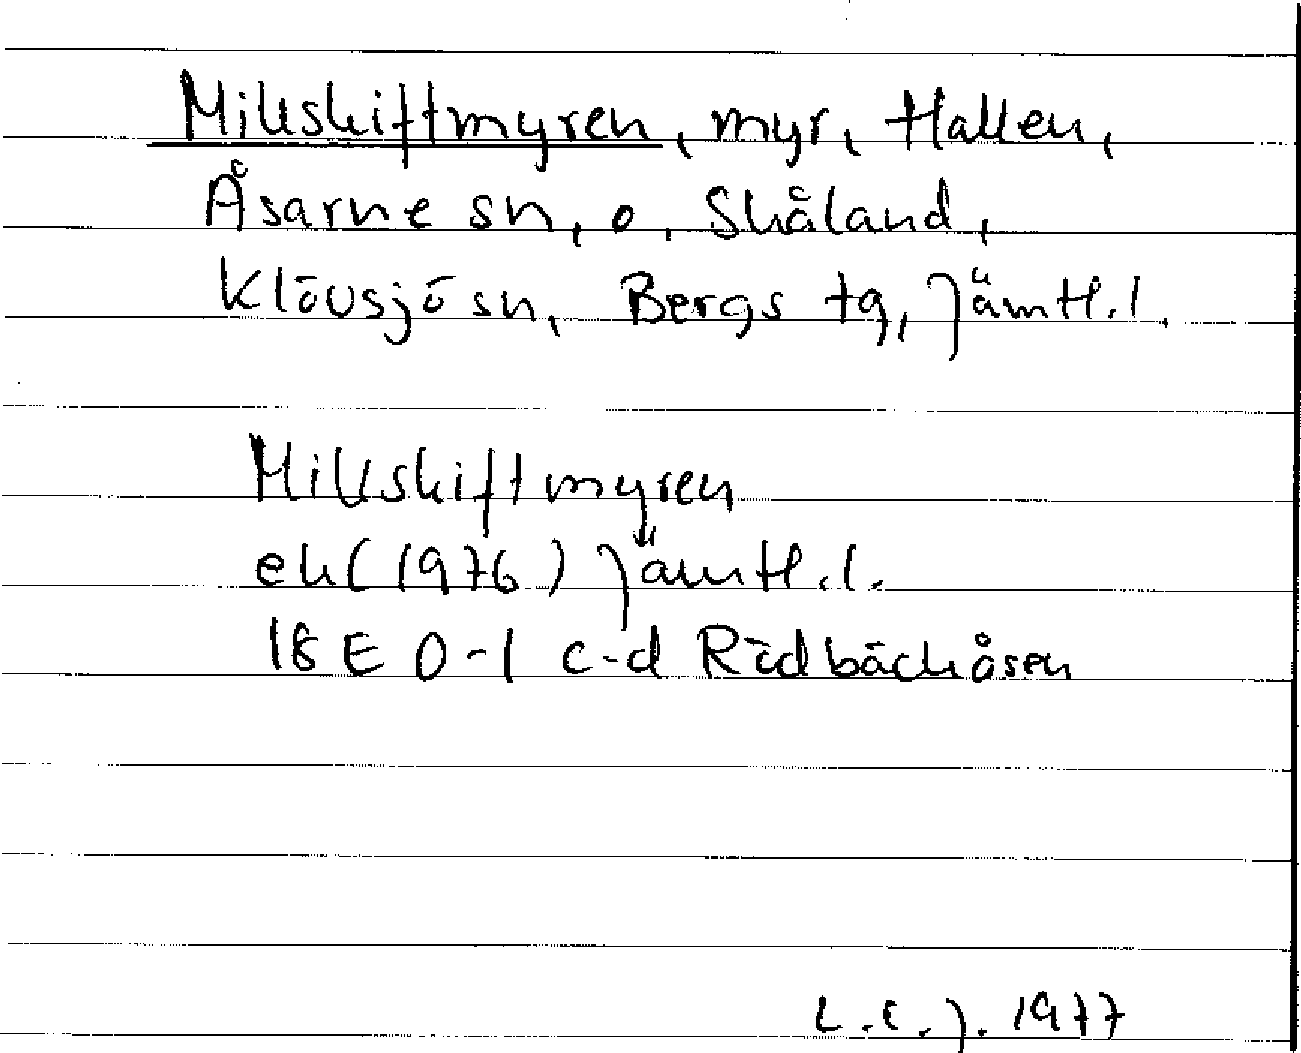 Millskiftmyren, myr, Hallen,
Åsarne sn, o, Skåland,
Klövsjö sn, Bergs tg, Jämtl. l.
Millskiftmyren
ek (1976) Jämtl. l.
18 E 0-1 c-d Rödbäckåsen
L.E.J. 1977